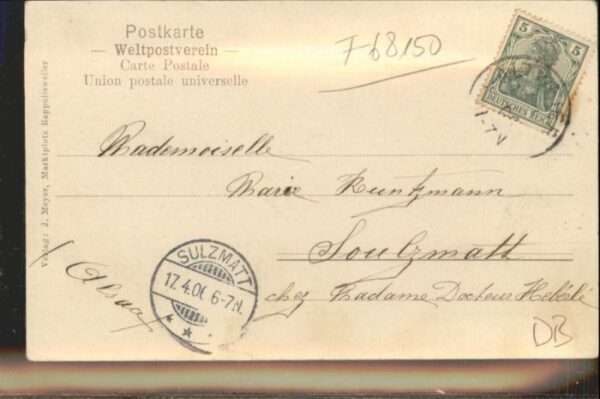 Postkarte
— Weltpostverein —
Carte Postale
Union postale universelle
F68150
5 5
DEUTSCHES REICH
Mademoiselle
Marie Kuntzmann
Soulzmatt
chez Madame Docteur
Alsace
SULZMATT
17.4.06. 6-7.N.
* *
Verlag: J. Meyer, Marktplatz Rappoltsweiler
DB